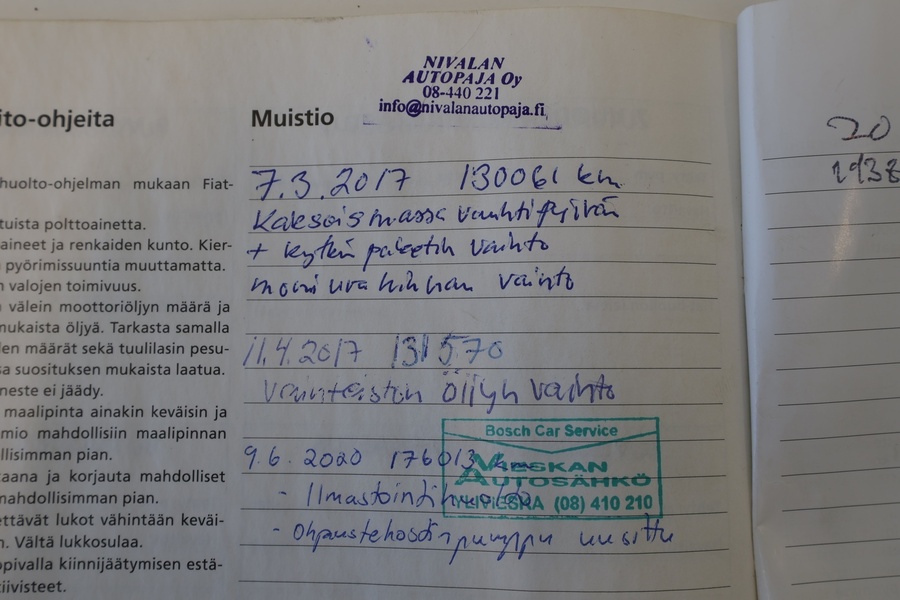 NIVALAN
AUTOPAJA Oy
08-440 221
info@nivalanautopaja.fi
ito-ohjeita
huolto-ohjelman mukaan Fiat-
tuista polttoainetta.
aineet ja renkaiden kunto. Kier-
pyörimissuuntia muuttamatta.
n valojen toimivuus.
välein moottoriöljyn määrä ja
mukaista öljyä. Tarkasta samalla
den määrät sekä tuulilasin pesu-
sa suosituksen mukaista laatua.
neste ei jäädy.
maalipinta ainakin keväisin ja
mio mahdollisiin maalipinnan
llisimman pian.
taana ja korjauta mahdolliset
mahdollisimman pian.
ettävät lukot vähintään keväi-
n. Vältä lukkosulaa.
opivalla kiinnijäätymisen estä-
tiivisteet.
Muistio
7.3.2017 130061 km
Kaksoismassa vauhtipyörän
+ kytkin paketin vaihto
moniurahihnan vaihto
11.4.2017 131570
vaihteiston öljyn vaihto
Bosch Car Service
9.6.2020 176013 km
VIESKAN
AUTOSÄHKÖ
- Ilmastointihuolto
YLIVIESKA (08) 410 210
- Ohjaustehostin pumppu uusittu
20
1938